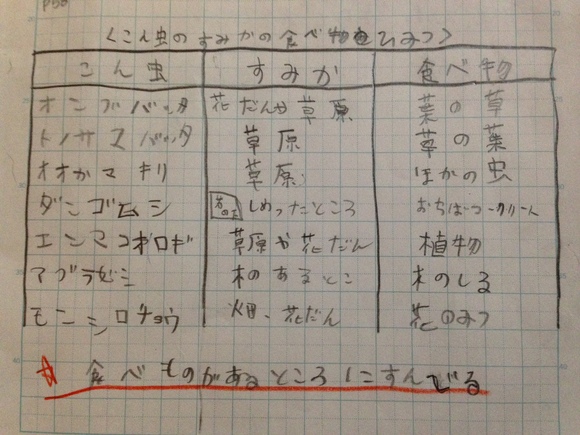 P50
〈こん虫のすみかの食べ物をひみつ〉
こん虫 すみか 食べ物
オンブバッタ 花だんや草原 葉の草
トノサマバッタ 草原 草の葉
オオカマキリ 草原 ほかの虫
ダンゴムシ しめったところ おちばコンクリート
エンマコオロギ 草原や花だん 植物
アブラゼミ 木のあるとこ 木のしる
モンシロチョウ 畑、花だん 花のみつ
☆ 食べものがあるところにすんでいる